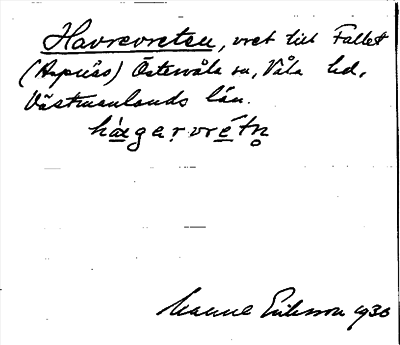 Havrevreten, vret till Fallet
(Aspnäs) Östervåla sn, Våla hd,
Västmanlands län.
hàgarvrétn̥
Manne Eriksson 1936